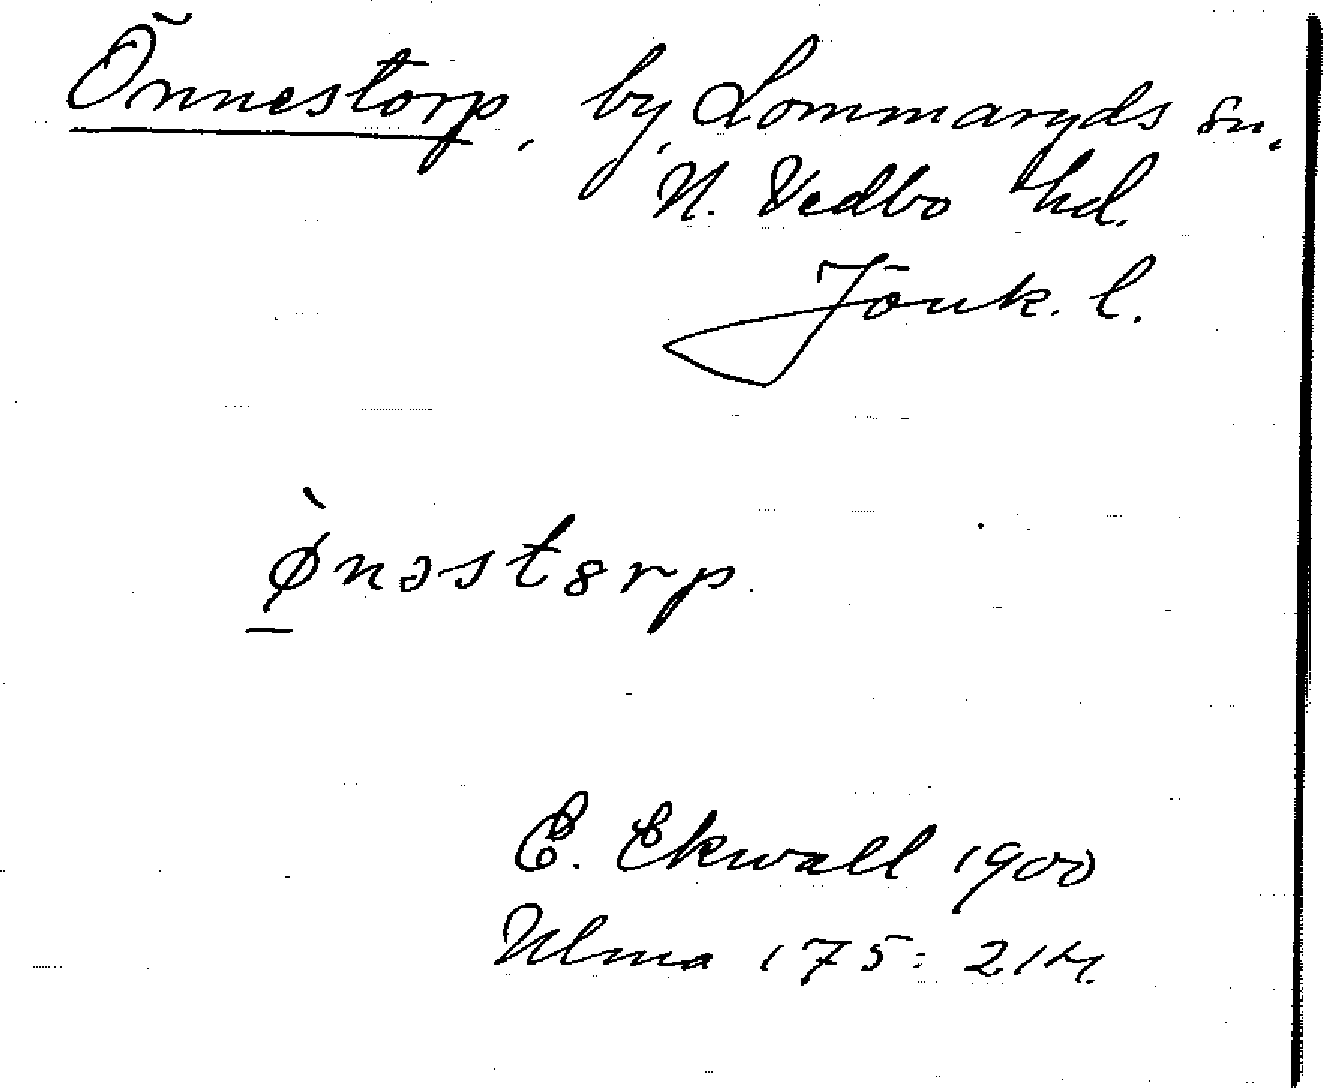 Önnestorp, by, Lommaryds sn.
N. Vedbo hd.
Jönk. l.
ø̀nəstɞrp.
E. Ekwall 1900
Ulma 175: 214.